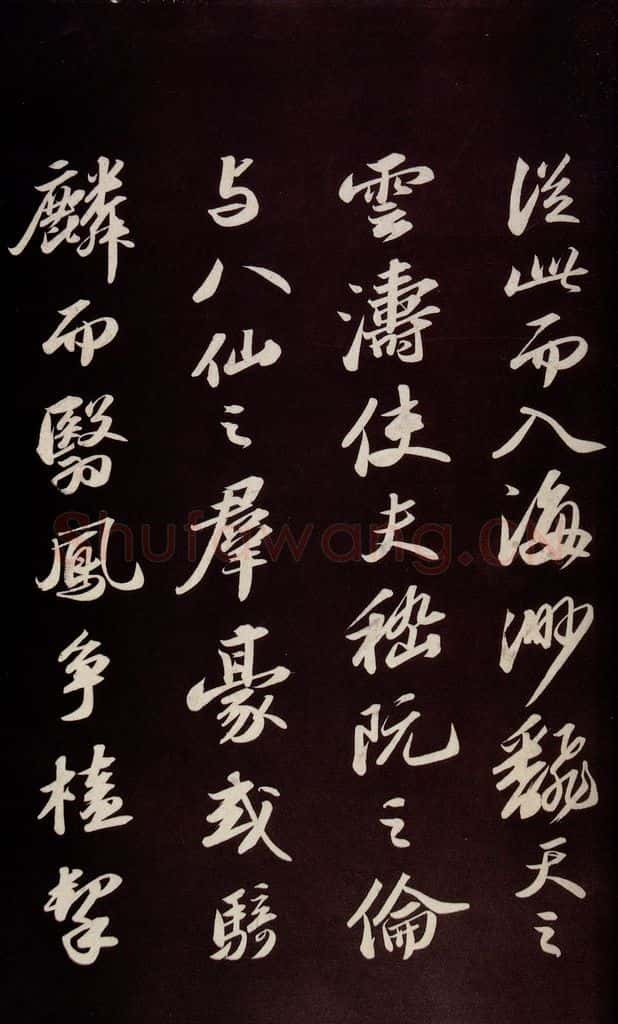 從此而入海渺飜天之
雲濤使夫嵇阮之倫
与八仙之羣豪或騎
麟而翳鳳争榼挈
Shufawang.cn